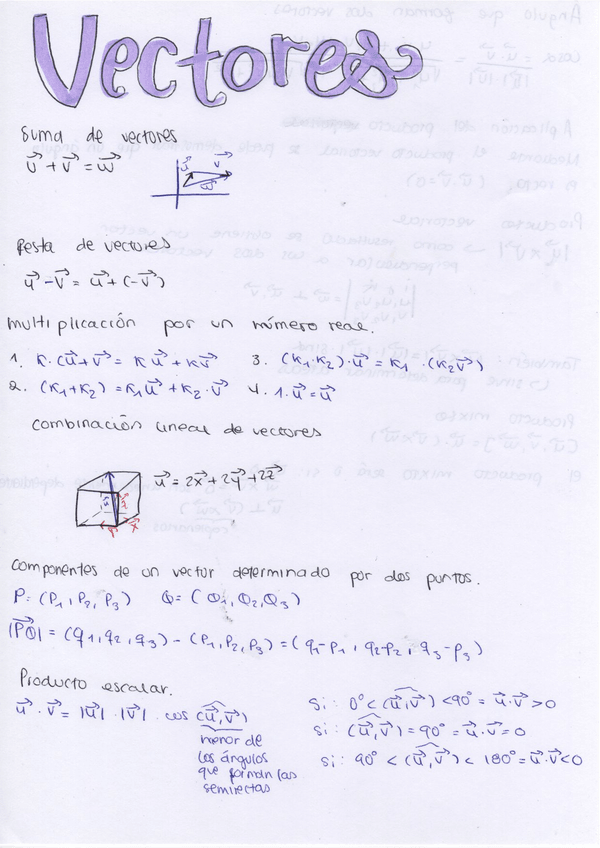 Vectores
Suma de vectores
u⃗ + v⃗ = w⃗
u⃗ v⃗
w⃗
Resta de vectores
u⃗ - v⃗ = u⃗ + (-v⃗)
multiplicación por un número real.
1. K·(u⃗+v⃗ = Ku⃗ + Kv⃗ 3. (K₁·K₂)·u⃗ = K₁ · (K₂v⃗)
2. (K₁+K₂) = K₁u⃗ + K₂·v⃗ 4. 1·u⃗ = u⃗
combinación lineal de vectores
u⃗ = 2x⃗ + 2y⃗ + 2z⃗
componentes de un vector determinado por dos puntos.
P = (P₁, P₂, P₃) Q = (Q₁, Q₂, Q₃)
|PQ⃗| = (q₁, q₂, q₃) - (P₁, P₂, P₃) = (q₁-P₁, q₂-P₂, q₃-P₃)
Producto escalar.
u⃗ · v⃗ = |u⃗| · |v⃗| · cos (u⃗, v⃗)
menor de
los ángulos
que forman las
semirectas
Si: 0° < (u⃗, v⃗) < 90° = u⃗·v⃗ > 0
Si: (u⃗, v⃗) = 90° = u⃗·v⃗ = 0
Si: 90° < (u⃗, v⃗) < 180° = u⃗·v⃗ < 0